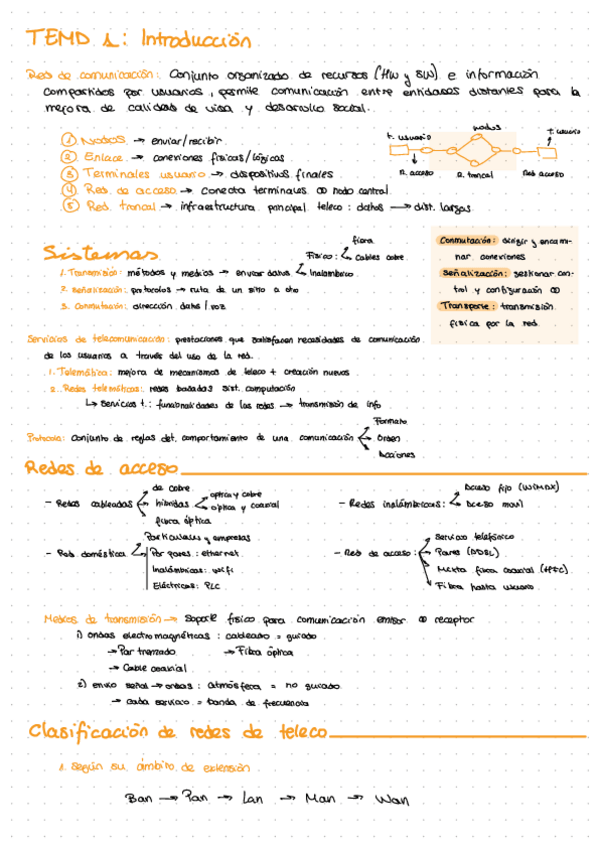 TEMA 1: Introducción
Red de comunicación: Conjunto organizado de recursos (HW y SW) e información
compartidos por usuarios, permite comunicación entre entidades distantes para la
mejora de calidad de vida y desarrollo social.
① Nodos → enviar/recibir
② Enlace → conexiones físicas/lógicas
③ Terminales usuario → dispositivos finales
④ Red de acceso → conecta terminales ↔ nodo central
⑤ Red troncal → infraestructura principal teleco: datos → dist. largas
nodos
t. usuario
t. usuario
R. acceso
R. troncal
Red acceso
Sistemas
1. Transmisión: métodos y medios → enviar datos
Físico:
fibra
Cables cobre
Inalámbrico
2. Señalización: protocolos → ruta de un sitio a otro
3. Conmutación: dirección datos/voz
Conmutación: dirigir y encami-
nar conexiones
Señalización: gestionar con-
trol y configuración
Transporte: transmisión
física por la red.
Servicios de telecomunicación: prestaciones que satisfacen necesidades de comunicación
de los usuarios a través del uso de la red.
1. Telemática: mejora de mecanismos de teleco + creación nuevos
2. Redes telemáticas: redes basadas sist. computación
↳ Servicios t.: funcionalidades de las redes → transmisión de info
Protocolo: Conjunto de reglas det. comportamiento de una comunicación
Formato
Orden
Acciones
Redes de acceso
- Redes cableadas
de cobre
híbridas
óptica y cobre
óptica y coaxial
fibra óptica
- Redes inalámbricas:
Acceso fijo (WIMAX)
Acceso movil
- Red doméstica
Particulares y empresas
Por pares: ethernet
Inalámbricas: wifi
Eléctricas: PLC
- Red de acceso:
Servicio telefónico
Pares (ADSL)
Mixta fibra coaxial (HFC)
Fibra hasta usuario
Medios de transmisión → Soporte físico para comunicación emisor ↔ receptor
1) ondas electromagnéticas: cableado = guiado
→ Par trenzado
→ Fibra óptica
→ Cable coaxial
2) envío señal → ondas: atmósfera = no guiado
→ cada servicio = banda de frecuencia
Clasificación de redes de teleco
1. Según su ámbito de extensión
Ban → Pan → Lan → Man → Wan